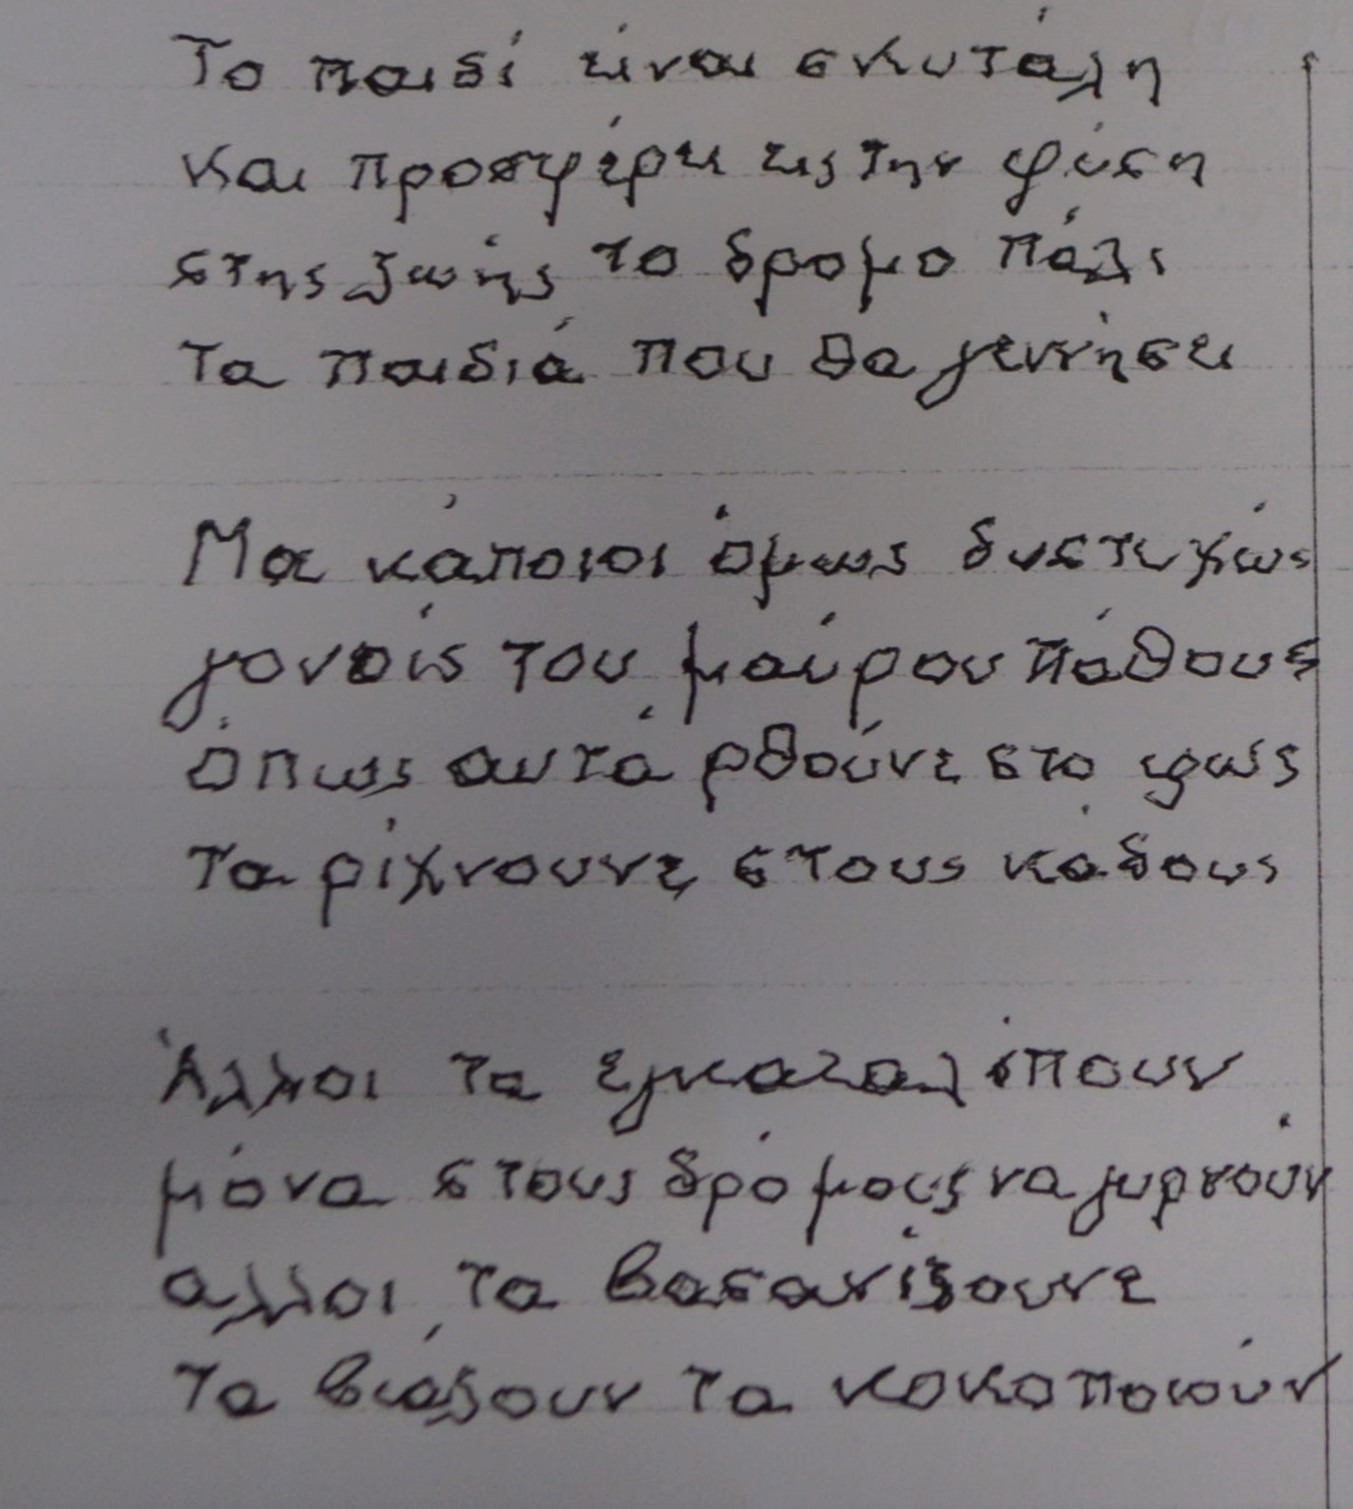 Το παιδί είναι σκυτάλη
και προσφέρει εις την φύση
στης ζωής το δρομο πάλι
τα παιδιά που θα γεννήσει
Μα κάποιοι όμως δυστυχώς
γονείς του μαύρου πάθους
όπως αυτά ρθούνε στο φως
τα ρίχνουνε στους κάδους
Άλλοι τα εγκαταλίπουν
μόνα στους δρόμους να γυρνούν
αλλοι τα βασανίζουνε
τα βιάζουν τα κακοποιούν